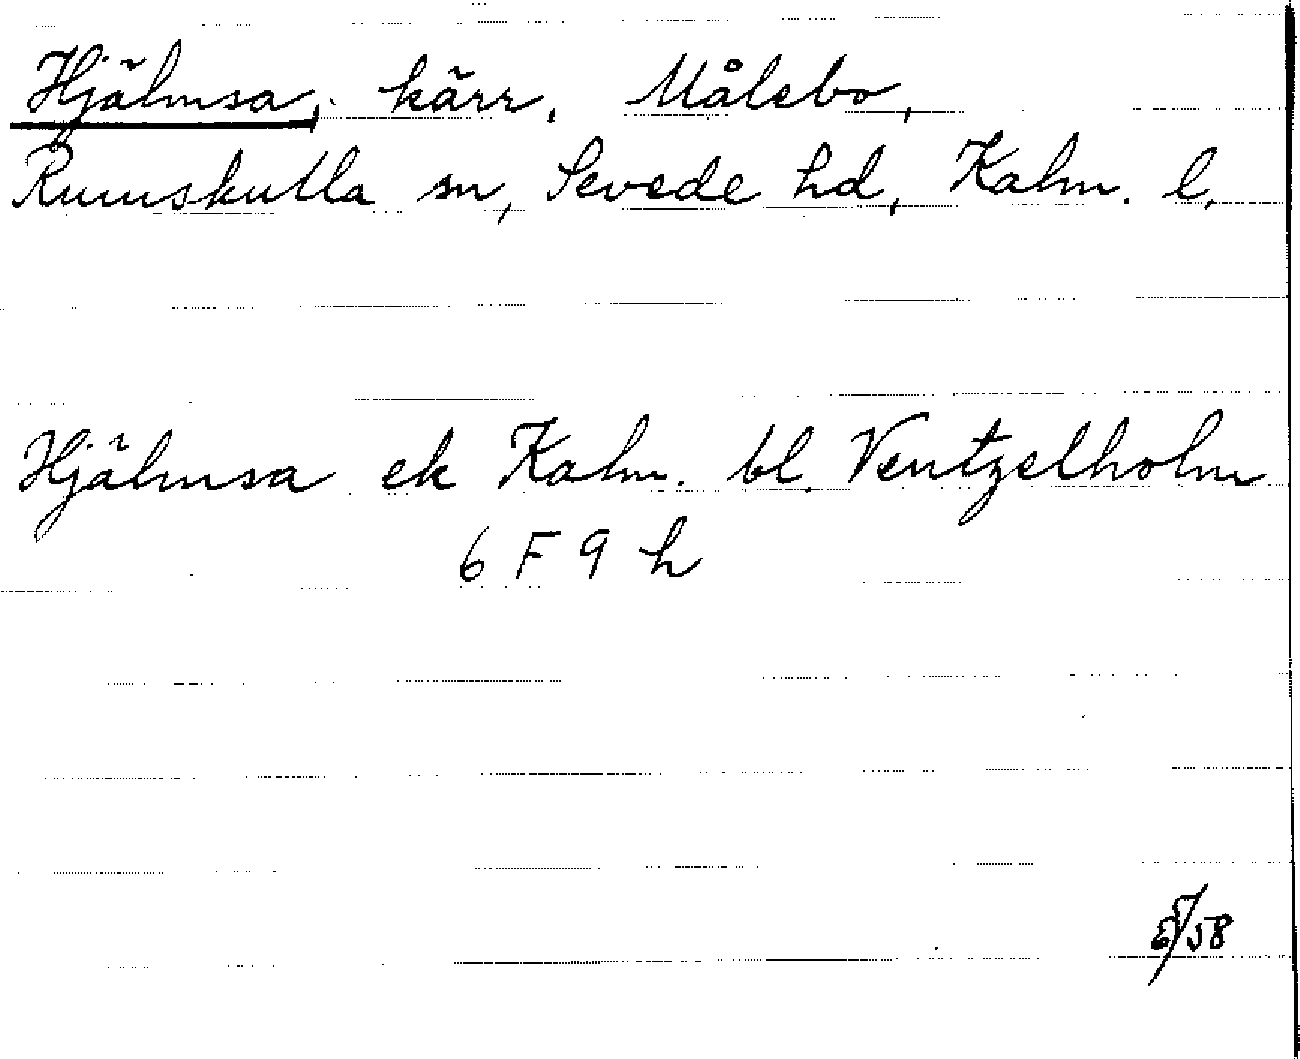 Hjälmsa, kärr, Målebo,
Rumskulla sn, Sevede hd, Kalm. l.
Hjälmsa ek Kalm. bl. Ventzelholm
6 F 9 h